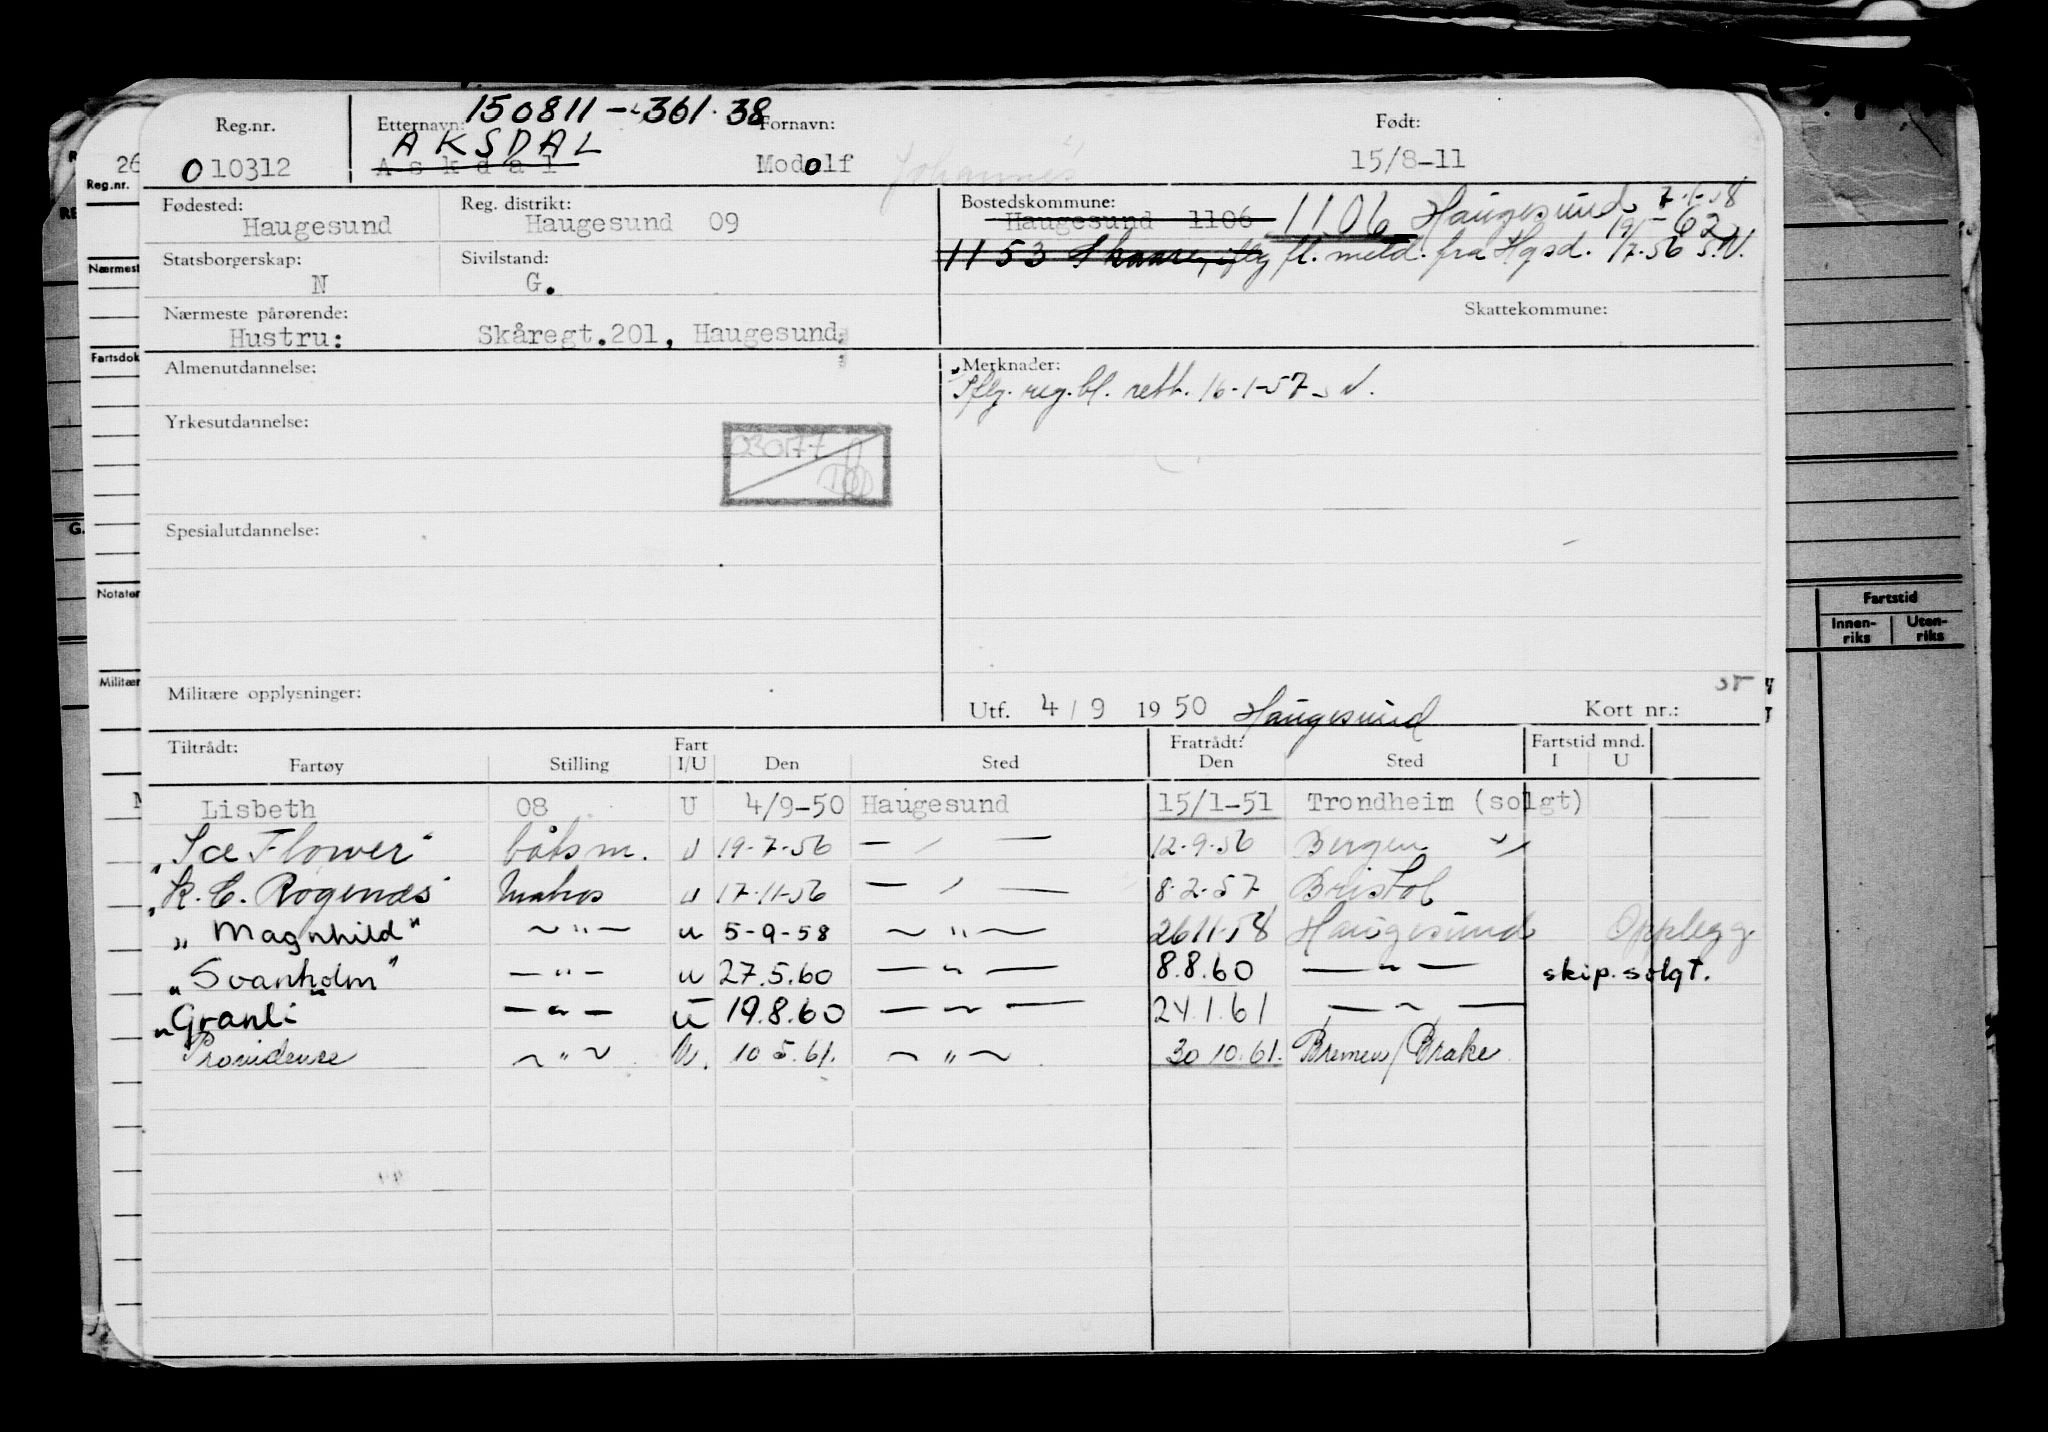 150811-36138
Reg.nr. Etternavn: Fornavn: Født:
010312 AKSDAL Askdal Modolf Johannes 15/8-11
Fødested: Reg. distrikt: Bostedskommune:
Haugesund Haugesund 09 Haugesund 1106 1106 Haugesund
Statsborgerskap: Sivilstand: 1153 Skaare, iflg. fl. meld. fra Hgsd. 17.56 S.N.
N G.
Nærmeste pårørende: Skattekommune:
Hustru: Skåregt.201, Haugesund.
Almenutdannelse: Merknader:
Iflg. reg.bl. rett. 16-1-57
Yrkesutdannelse:
030177
Spesialutdannelse:
Militære opplysninger:
Utf. 4/9 1950 Haugesund Kort nr.:
Tiltrådt: Fart Fratrådt: Fartstid mnd.
Fartøy Stilling I/U Den Sted Den Sted I U
Lisbeth 08 U 4/9-50 Haugesund 15/1-51 Trondheim (solgt)
"Ice Flower" båtsm. U 19-7-56 — " — 12-9-56 Bergen
"K. C. Rogenæs" Matros U 17-11-56 — " — 8-2-57 Bristol
"Magnhild" — " — u 5-9-58 — " — 26 11-58 Haugesund Opplegg
"Svanholm" — " — u 27.5.60 — " — 8.8.60 — " — skip. solgt.
"Granli" — " — u 19.8.60 — " — 24.1.61 — " —
Providence — " — U. 10.5.61. — " — 30.10.61. Bremen/Brake
Reg.nr.
Nærmest
Fartsdok
G.
Notater
Militær
Fartstid
Innen-riks Uten-riks